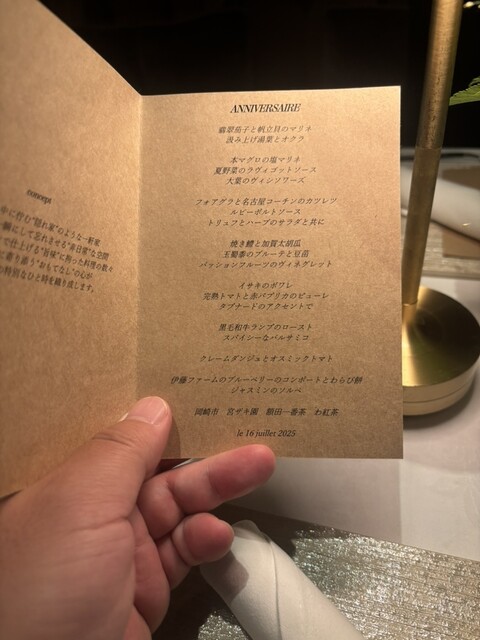 concept
中に佇む"隠れ家"のような一軒家
瞬にして忘れさせる"非日常"な空間
で仕上げる"旨味"に拘った料理の数々
に寄り添う"おもてなし"の心が、
特別なひと時を織り成します。
ANNIVERSAIRE
翡翠茄子と帆立貝のマリネ
汲み上げ湯葉とオクラ
本マグロの塩マリネ
夏野菜のラヴィゴットソース
大葉のヴィシソワーズ
フォアグラと名古屋コーチンのカツレツ
ルビーポルトソース
トリュフとハーブのサラダと共に
焼き鱧と加賀太胡瓜
玉蜀黍のブルーテと豆苗
パッションフルーツのヴィネグレット
イサキのポワレ
完熟トマトと赤パプリカのピューレ
タプナードのアクセントで
黒毛和牛ランプのロースト
スパイシーなバルサミコ
クレームダンジュとオスミックトマト
伊藤ファームのブルーベリーのコンポートとわらび餅
ジャスミンのソルベ
岡崎市 宮ザキ園 額田一番茶 わ紅茶
le 16 juillet 2025